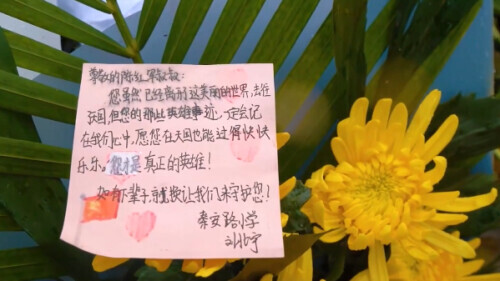 尊敬的陈红军叔叔:
您虽然已经离别这美丽的世界,去往
天国,但您的那些英雄事迹,一定会记
在我们心中,愿您在天国也能过得快快
乐乐。您才是真正的英雄!
如有下辈子,就换让我们来守护您!
秦安路小学
刘北宇